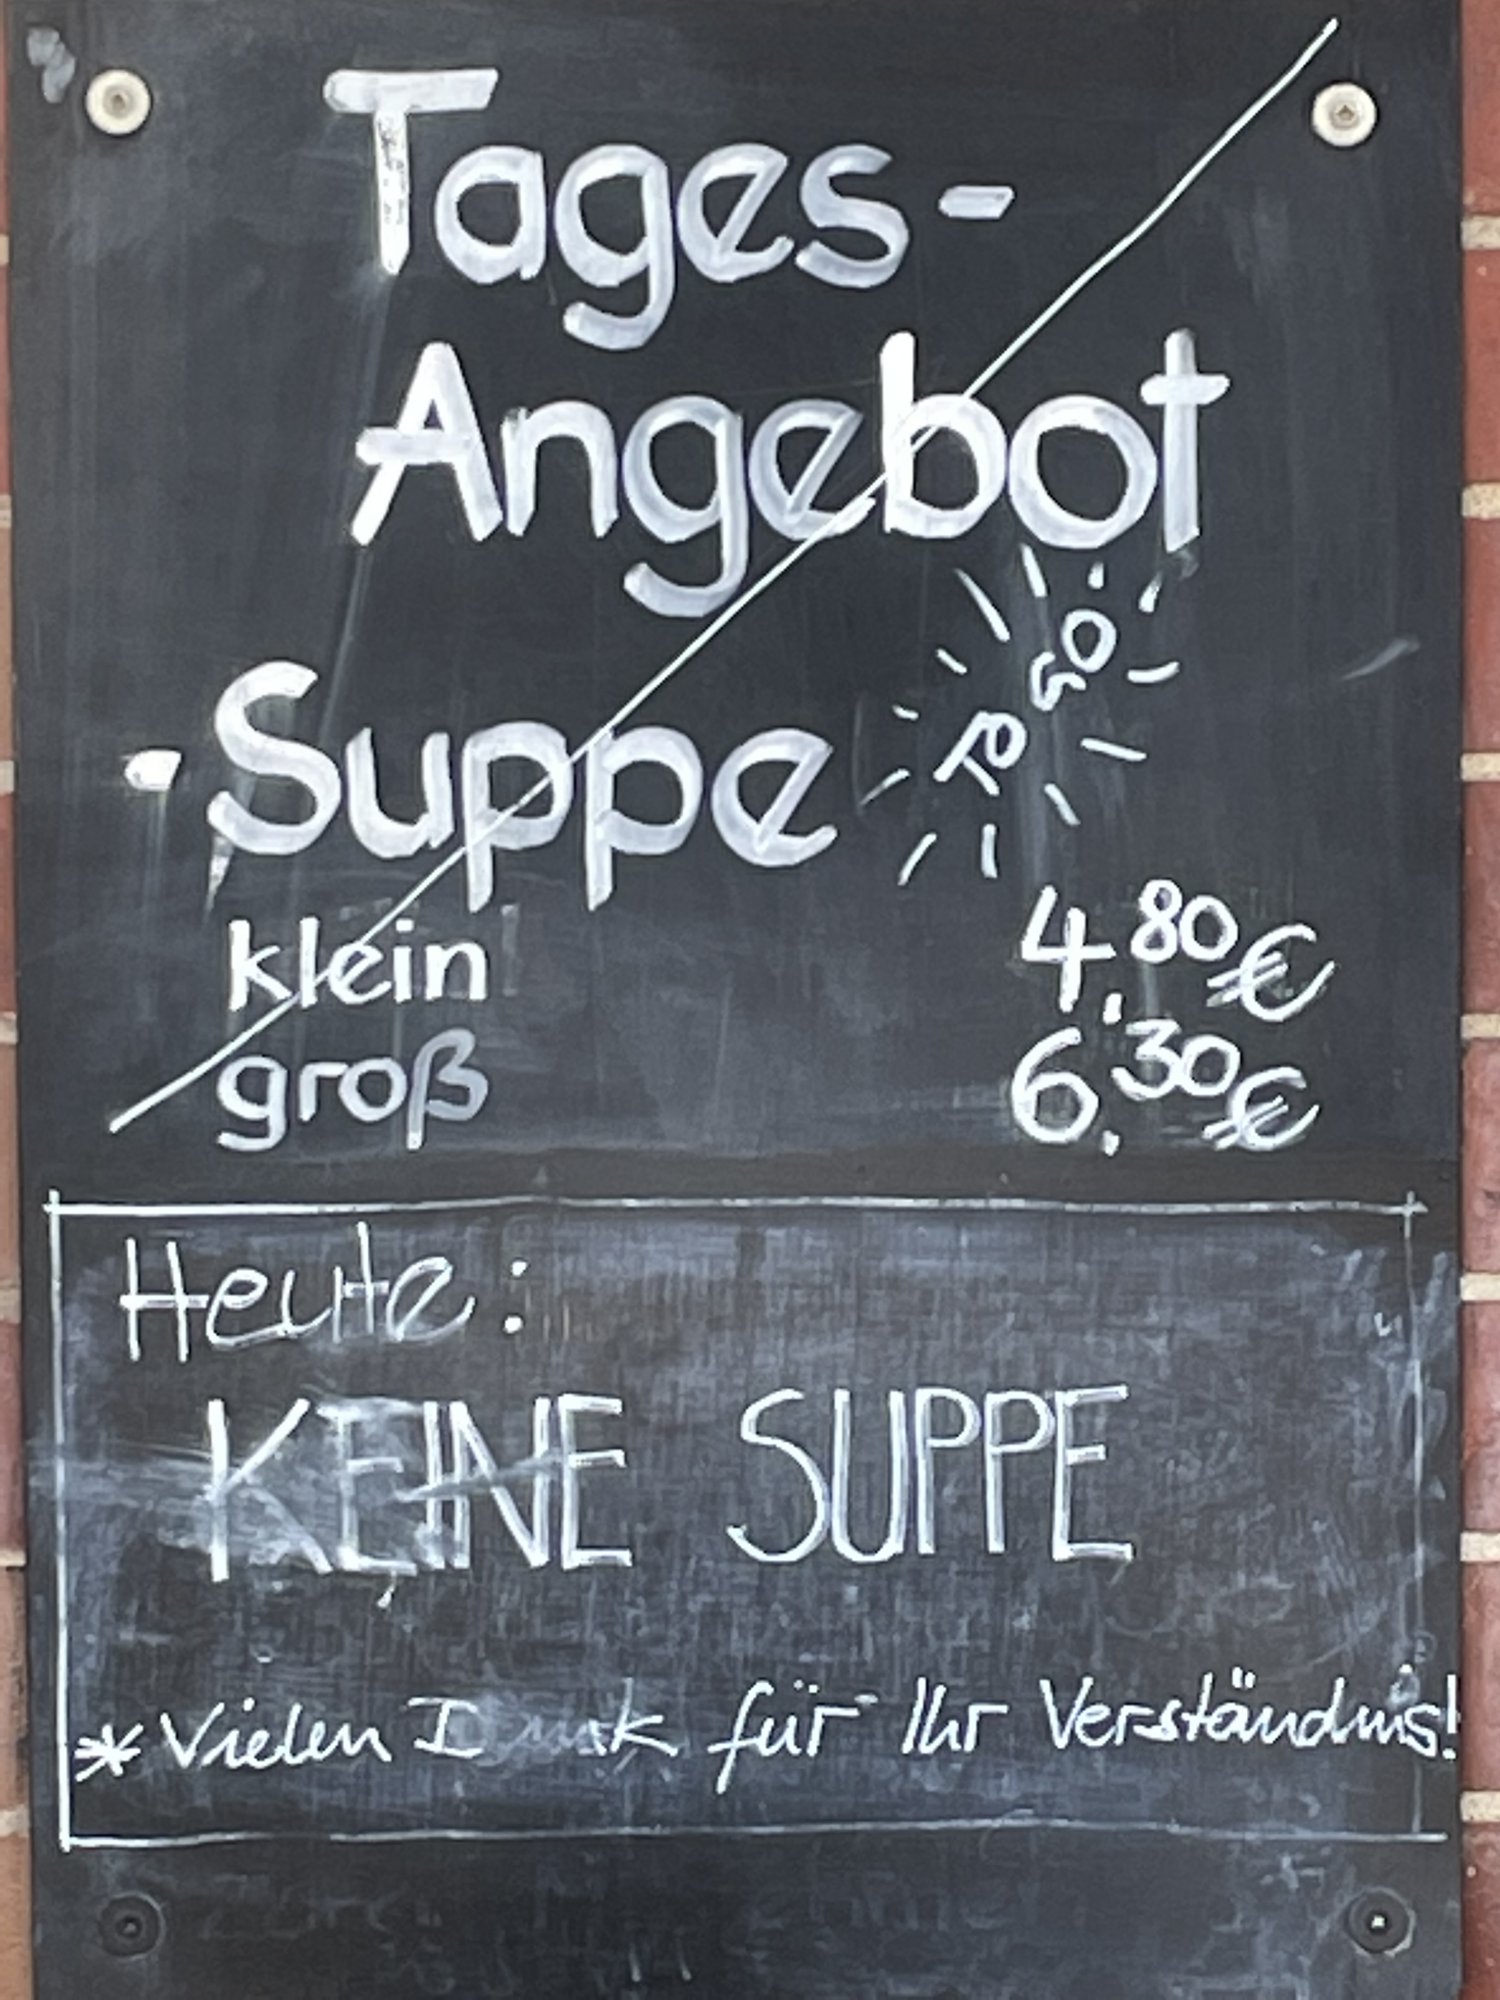 Tages-
Angebot
·Suppe TO GO
klein 4,80€
groß 6,30€
Heute:
KEINE SUPPE
* Vielen Dank für Ihr Verständnis!